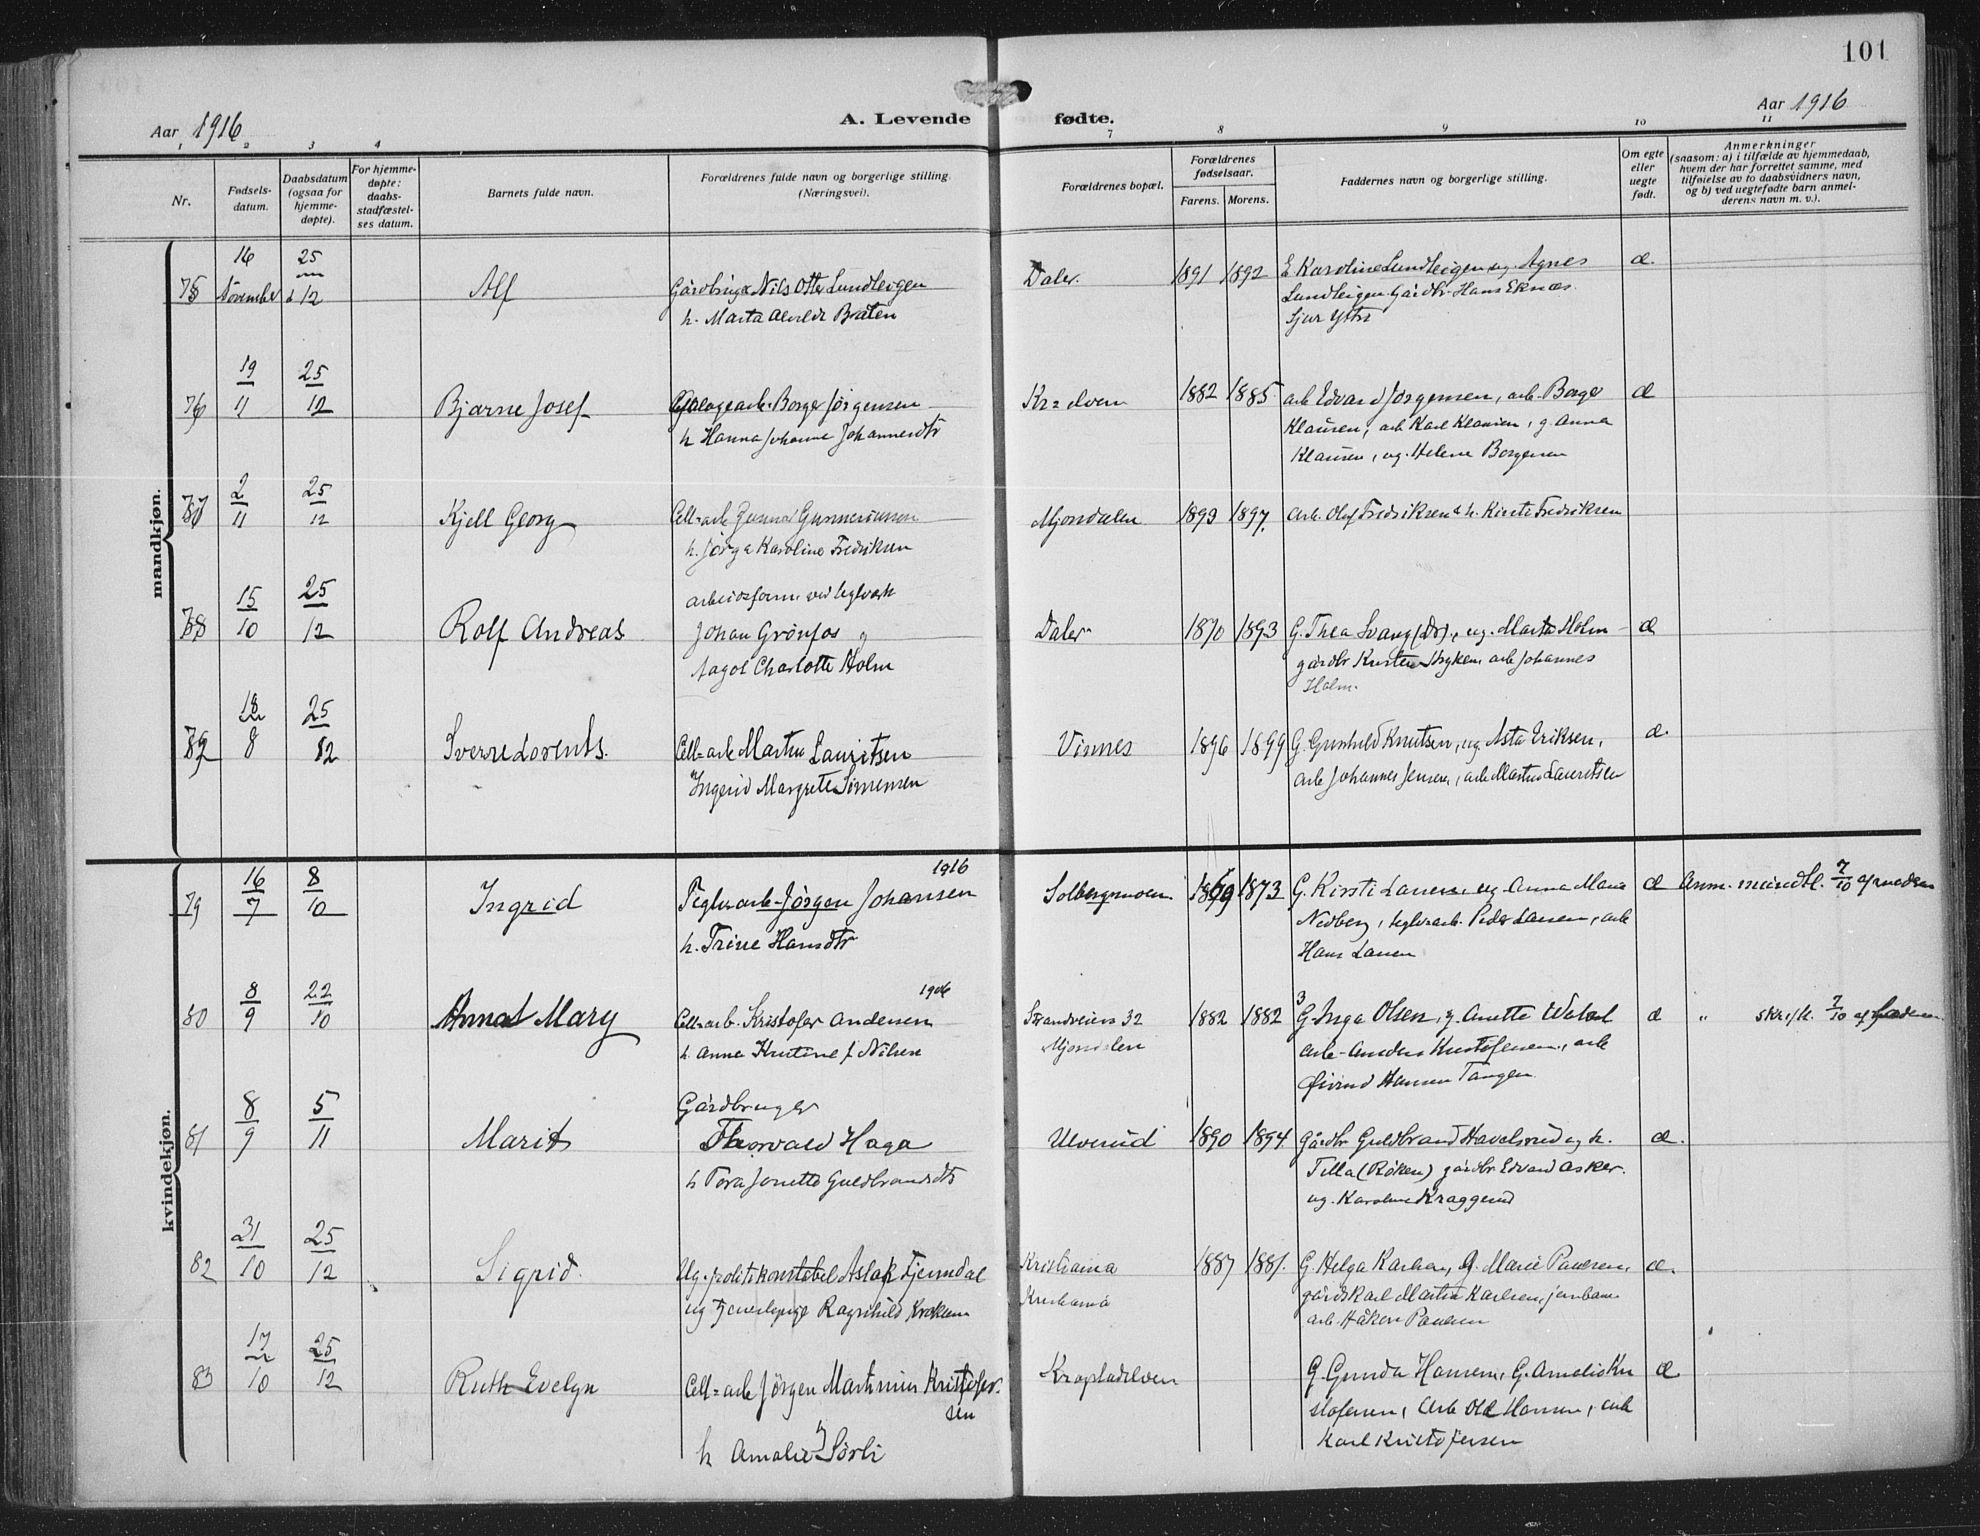 101
Aar 1916
A. Levende fødte.
Aar 1916
1 2 3 4 7 8 9 10 11
Nr.
Fødsels-
datum.
Daabsdatum
(ogsaa for
hjemme-
døpte).
For hjemme-
døpte:
daabs-
stadfæstel-
ses datum.
Barnets fulde navn.
Forældrenes fulde navn og borgerlige stilling.
(Næringsvei).
Forældrenes bopæl.
Forældrenes
fødselsaar.
Farens. Morens.
Faddernes navn og borgerlige stilling.
Om egte
eller
uegte
født.
Anmerkninger
(saasom: a) i tilfælde av hjemmedaab,
hvem der har forrettet samme, med
tilføielse av to daabsvidners navn,
og b) ved uegtefødte barn anmel-
derens navn m. v.).
mandkjøn.
75 16 November 25/12 Alf
Nils Otto Lundteigen
h. Marta Braten
Daler. 1891 1892
E. Karoline Lundteigen ug. Agnes
Lundteigen Gårdbr. Hans Eknæs
Sjur
æ.
76 19/11 25/12 Bjarne Josef
Borge Jørgensen
h Hanna Johanne Johannesdtr
Kr=elven 1882 1885
arb Edvard Jørgensen, arb. Borge
Klausen, arb Karl Klausen, g. Anna
Klausen, ug. Helene Borgersen
æ
77 2/11 25/12 Kjell Georg
Cell=arb Gunnar Gunnerussen
h. Jørga Karoline Fredriksen
Mjondalen 1893 1897.
arb. Olaf Fredriksen & h. Kirsti Fredriksen
78 15/10 25/12 Rolf Andreas
arbeidsform. ved teglverk
Johan Grönfos og
Aagot Charlotte Holm
Daler 1870 1893
G. Thea Svang (Dr), ug. Marta Holm
gårdbr Kristen Stryken, arb Johannes
Holm.
æ
79 18/8 25/12 Sverre Lorents.
Cell=arb Martin Lauritsen
Ingerid Margrete Sørrensen
Vinnes 1896 1899
G. Gunhild Knutsen, ug Asta Eriksen,
arb Johannes Jensen, arb Martin Lauritsen
æ.
kvindekjøn.
79 16/7 8/10 Ingrid
1916
Teglv=arb. Jørgen Johansen
h. Trine Hansdtr
Solbergmoen 1873
G. Kirsti Larsen, ug. Anna Marie
Nedberg, teglv=arb. Peder Larsen, arb
Hans Larsen
æ Anm. mündtl. 7/10 af moderen
80 8/9 22/10 Anna Mary
1906
Cell=arb. Kristofer Andersen
h. Anna Kristine f. Nilsen
Strandveien 32
Mjondalen
1882 1882 3
G. Inga Olsen, g. Anette
arb. Anders Kristofersen, arb
Øivind Hansen Tangen
æ " skriftl. 7/10 af faderen
81 8/9 5/11 Marit
Gårdbruger
Thorvald Haga
h Tora Jonette Guldbrandsdtr
Ulverud 1890 1894
Gårdbr Guldbrand Havelsrud og h.
Tilla (Røken) gårdbr Edvard Asker.
ug. Karoline Kraggerud
æ.
82 31/10 25/12 Sigrid.
Ug. politikonstabel Aslak Tjerndal
ug Tjenestepige Ragnhild Krokum
Kristiania
Kristiania
1887 1881.
G. Helga Karlsen, G. Marie Paulsen,
gårdskarl Martin Karlsen, jernbane
arb. Håkon Paulsen
æ.
83 17/10 25/12 Ruth Evelyn
Cell=arb Jørgen Martinius Kristofer-
sen
h Amalie Sørli
Krogstadelven
G. Gunda Hansen, G. Amelis Kri
stofersen, Arb Ole Hansen, arb
Karl Kristofersen
æ